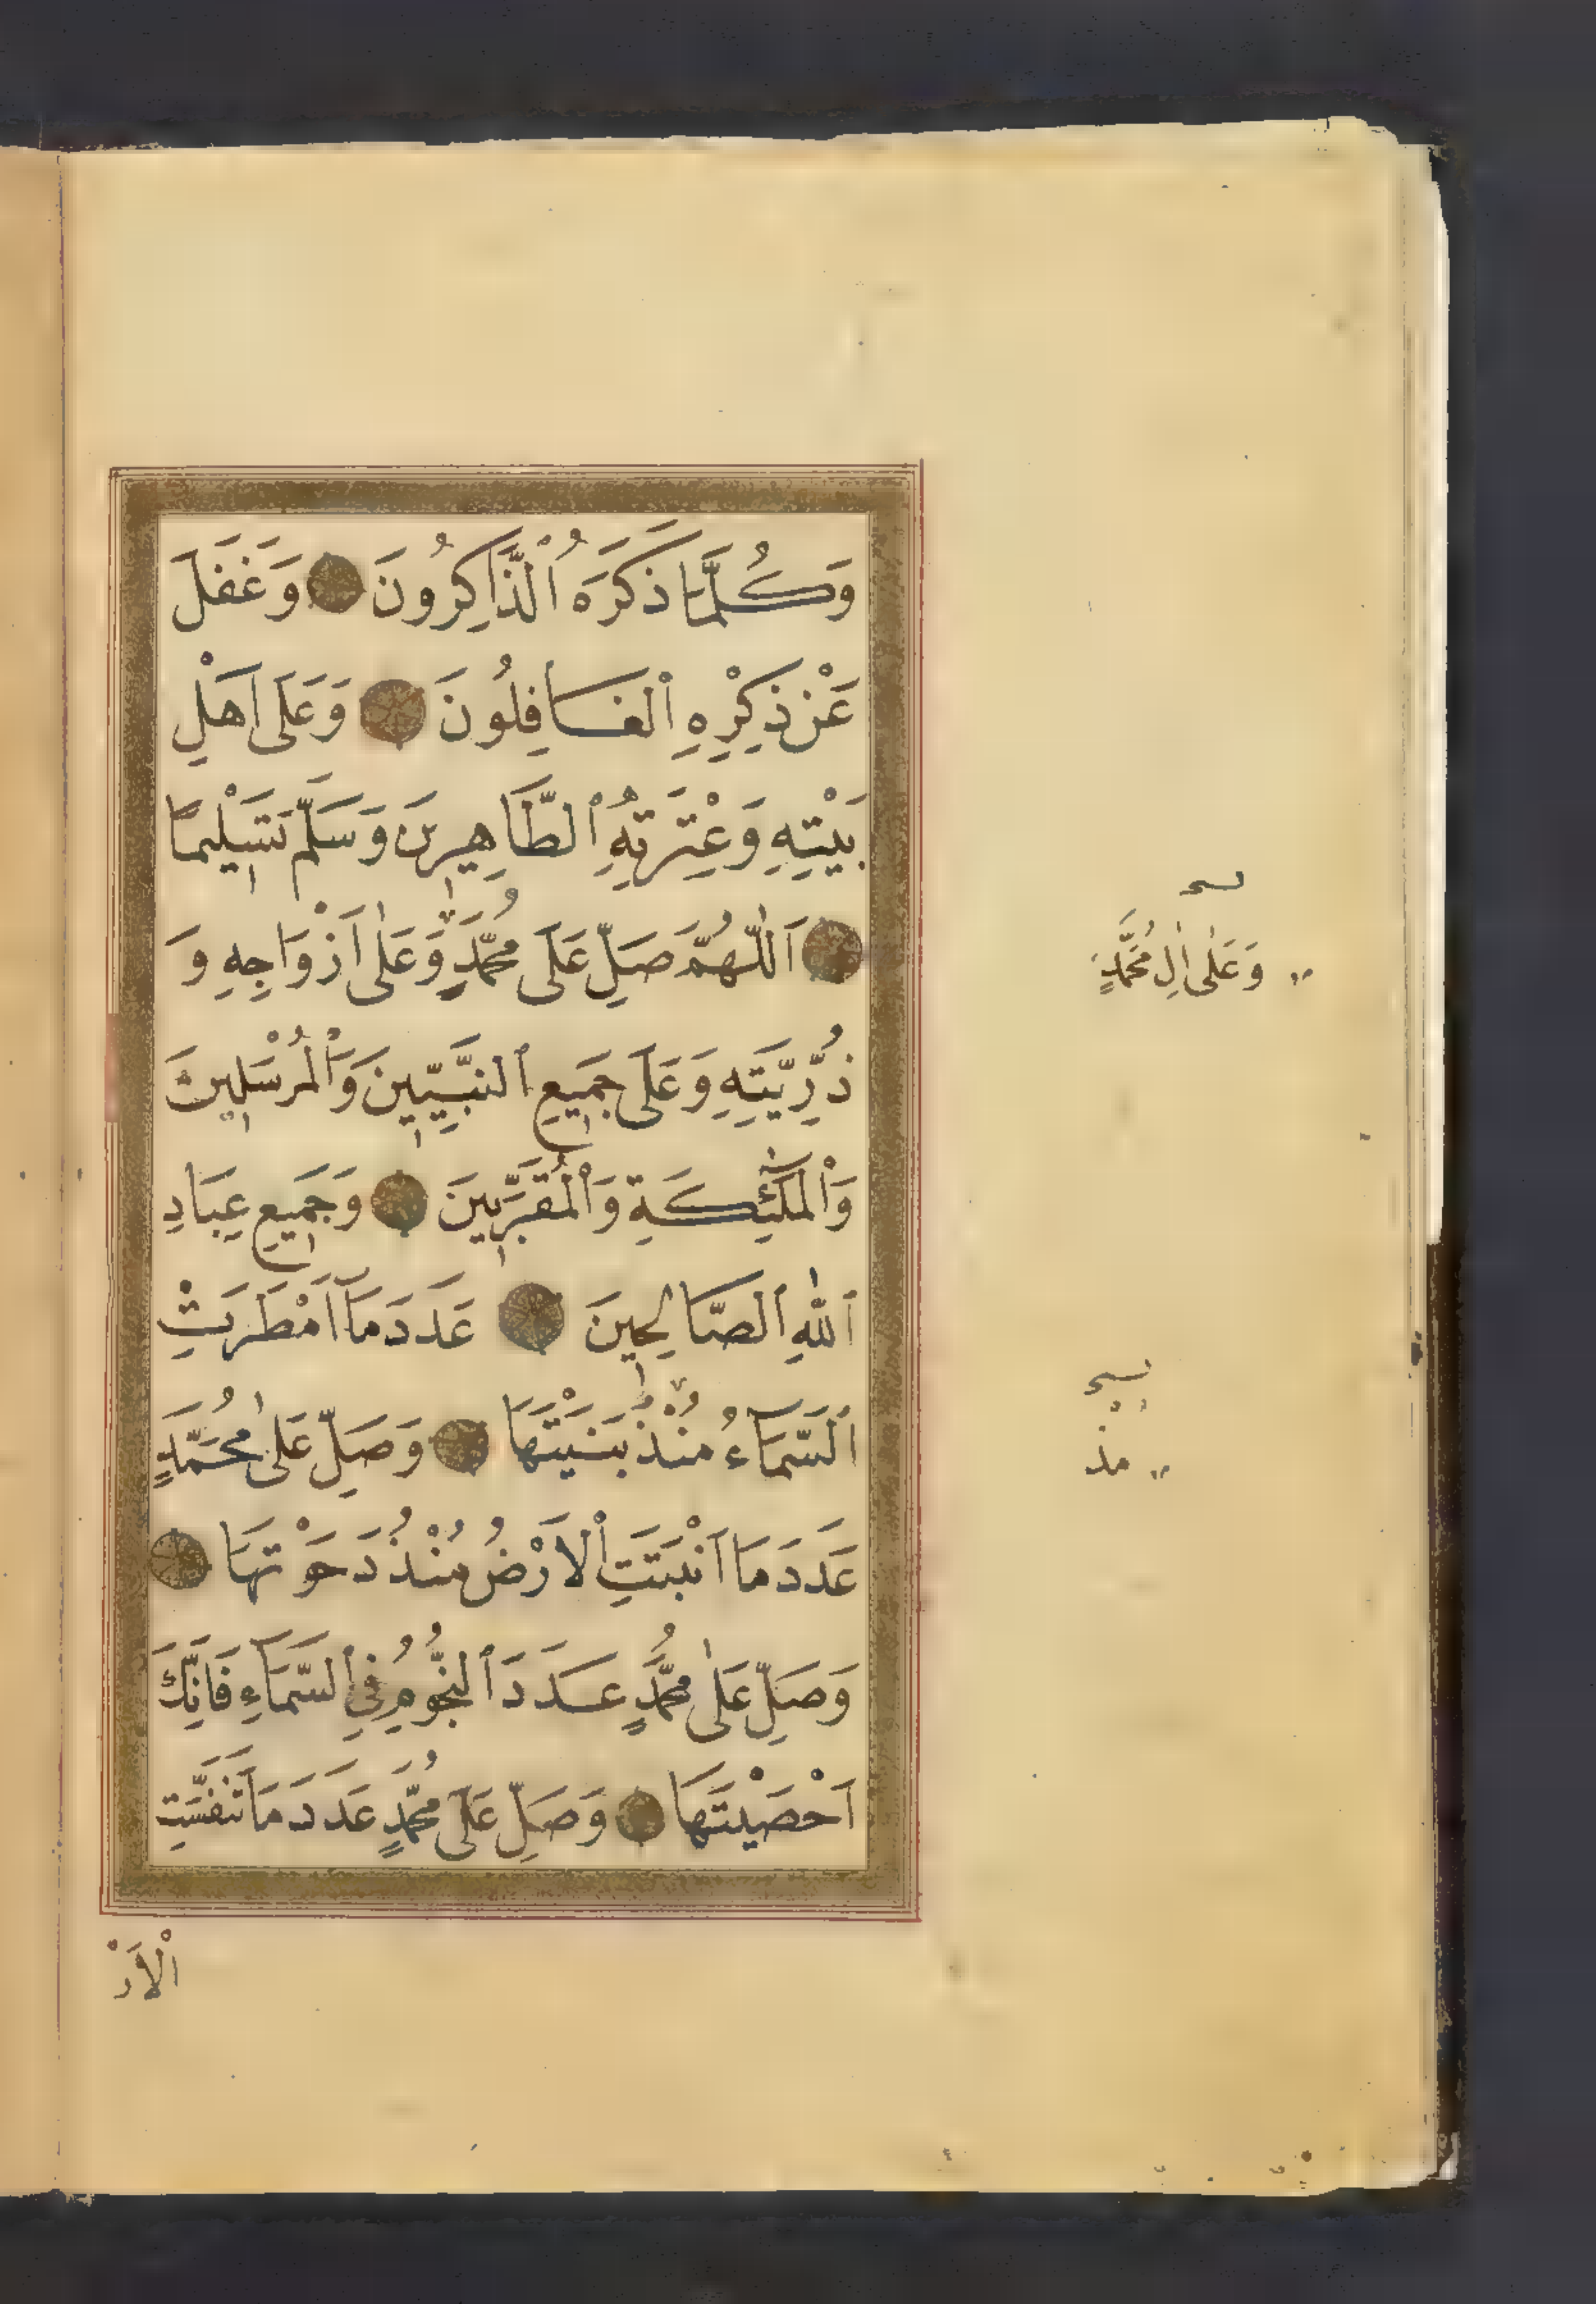 وَكُلَّمَا ذَكَرَهُ ٱلذَّاكِرُونَ وَغَفَلَ
عَنْ ذِكْرِهِ ٱلْغَافِلُونَ وَعَلَى اَهْلِ
بَيْتِهِ وَعِتْرَتِهِ ٱلطَّاهِرِينَ وَسَلِّمْ تَسْلِيمًا
اَللّٰهُمَّ صَلِّ عَلَى مُحَمَّدٍ وَعَلٰى اَزْوَاجِهِ وَ
ذُرِّيَّتِهِ وَعَلَى جَمِيعِ ٱلنَّبِيِّينَ وَٱلْمُرْسَلِينَ
وَٱلْمَلٰٓئِكَةِ وَٱلْمُقَرَّبِينَ وَجَمِيعِ عِبَادِ
ٱللّٰهِ ٱلصَّالِحِينَ عَدَدَ مَٓا اَمْطَرَتِ
ٱلسَّمَاءُ مُنْذُ بَنَيْتَهَا وَصَلِّ عَلٰى مُحَمَّدٍ
عَدَدَ مَا اَنْبَتَتِ ٱلْاَرْضُ مُنْذُ دَحَوْتَهَا
وَصَلِّ عَلٰى مُحَمَّدٍ عَدَدَ ٱلنُّجُومِ فِي ٱلسَّمَاءِ فَاِنَّكَ
اَحْصَيْتَهَا وَصَلِّ عَلَى مُحَمَّدٍ عَدَدَ مَا تَنَفَّسَتِ
ٱلْاَرْ
وَعَلٰى اٰلِ مُحَمَّدٍ
مذ